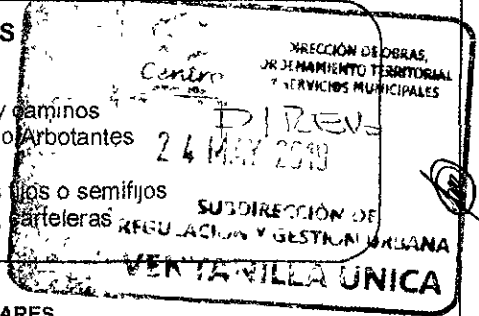 S
DIRECCIÓN DE OBRAS,
Centro
ORDENAMIENTO TERRITORIAL
Y SERVICIOS MUNICIPALES
y caminos
o Arbotantes
24 MAY 2019
fijos o semifijos
SUBDIRECCIÓN DE
carteleras
REGULACIÓN Y GESTIÓN URBANA
VENTANILLA UNICA
ARES